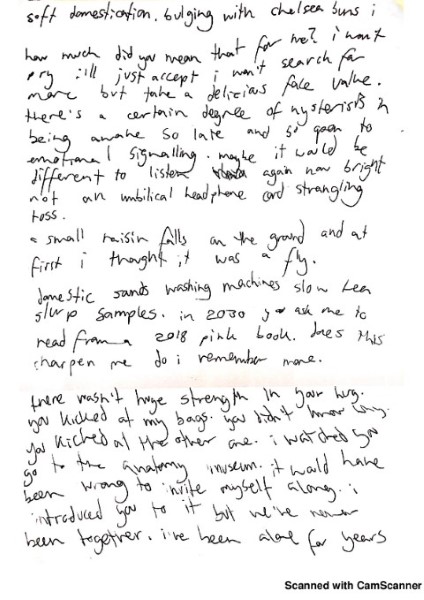 soft domestication. bulging with chelsea buns i
how much did you mean that for me? i won't
pry i'll just accept i won't search for
more but take a delicious face value.
there's a certain degree of hysterisis in
being awake so late and so open to
emotional signalling. maybe it would be
different to listen again now bright
not an umbilical headphone cord strangling
toss.
a small raisin falls on the ground and at
first i thought it was a fly.
domestic sands washing machines slow tea
slurp samples. in 2030 you ask me to
read from a 2018 pink book. does this
sharpen me do i remember more.
there wasn't huge strength in your hug.
you kicked at my bags. you didn't know why.
you kicked at the other one. i watched you
go to the anatomy museum. it would have
been wrong to invite myself along. i
introduced you to it but we've never
been together. i've been alone for years
Scanned with CamScanner